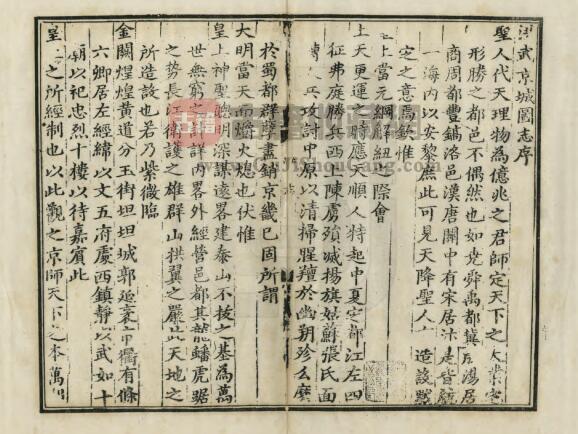 洪武京城圖志序
聖人代天理物為億兆之君師定天下之大業必
形勝之都邑不偶然也如堯舜禹都冀成湯居
商周都豐鎬洛邑漢唐關中有宋居汴是皆
一海内以安黎庶此可見天降聖人 造設黙
定之意焉欽惟
上當元綱解紐 際會
上天更運之時應天順人特起中夏定都江左四
征弗庭勝兵西上陳虜殞㓕揚旗姑蘇張氏面
縛 兵攻討中原以清掃腥羶於幽朔殄么麽
於蜀都群孽盡銷京畿已固所謂
大明當天而 火熄也伏惟
皇上神聖聰明深謀遠畧建泰山不拔之基為萬
世無窮之 詳内畧外經營邑都其龍蟠虎踞
之勢長江衛護之雄群山拱翼之嚴此天地之
所造設也若乃紫微臨
金闕煌煌黄道分玉街坦坦城郭延袤市衢有條
六卿居左經緯以文五府處西鎮靜以武如十
廟以祀忠烈十樓以待嘉賓此
皇上之所經制也以此觀之京師天下之本萬
古籍
GuJiShouCang.Com